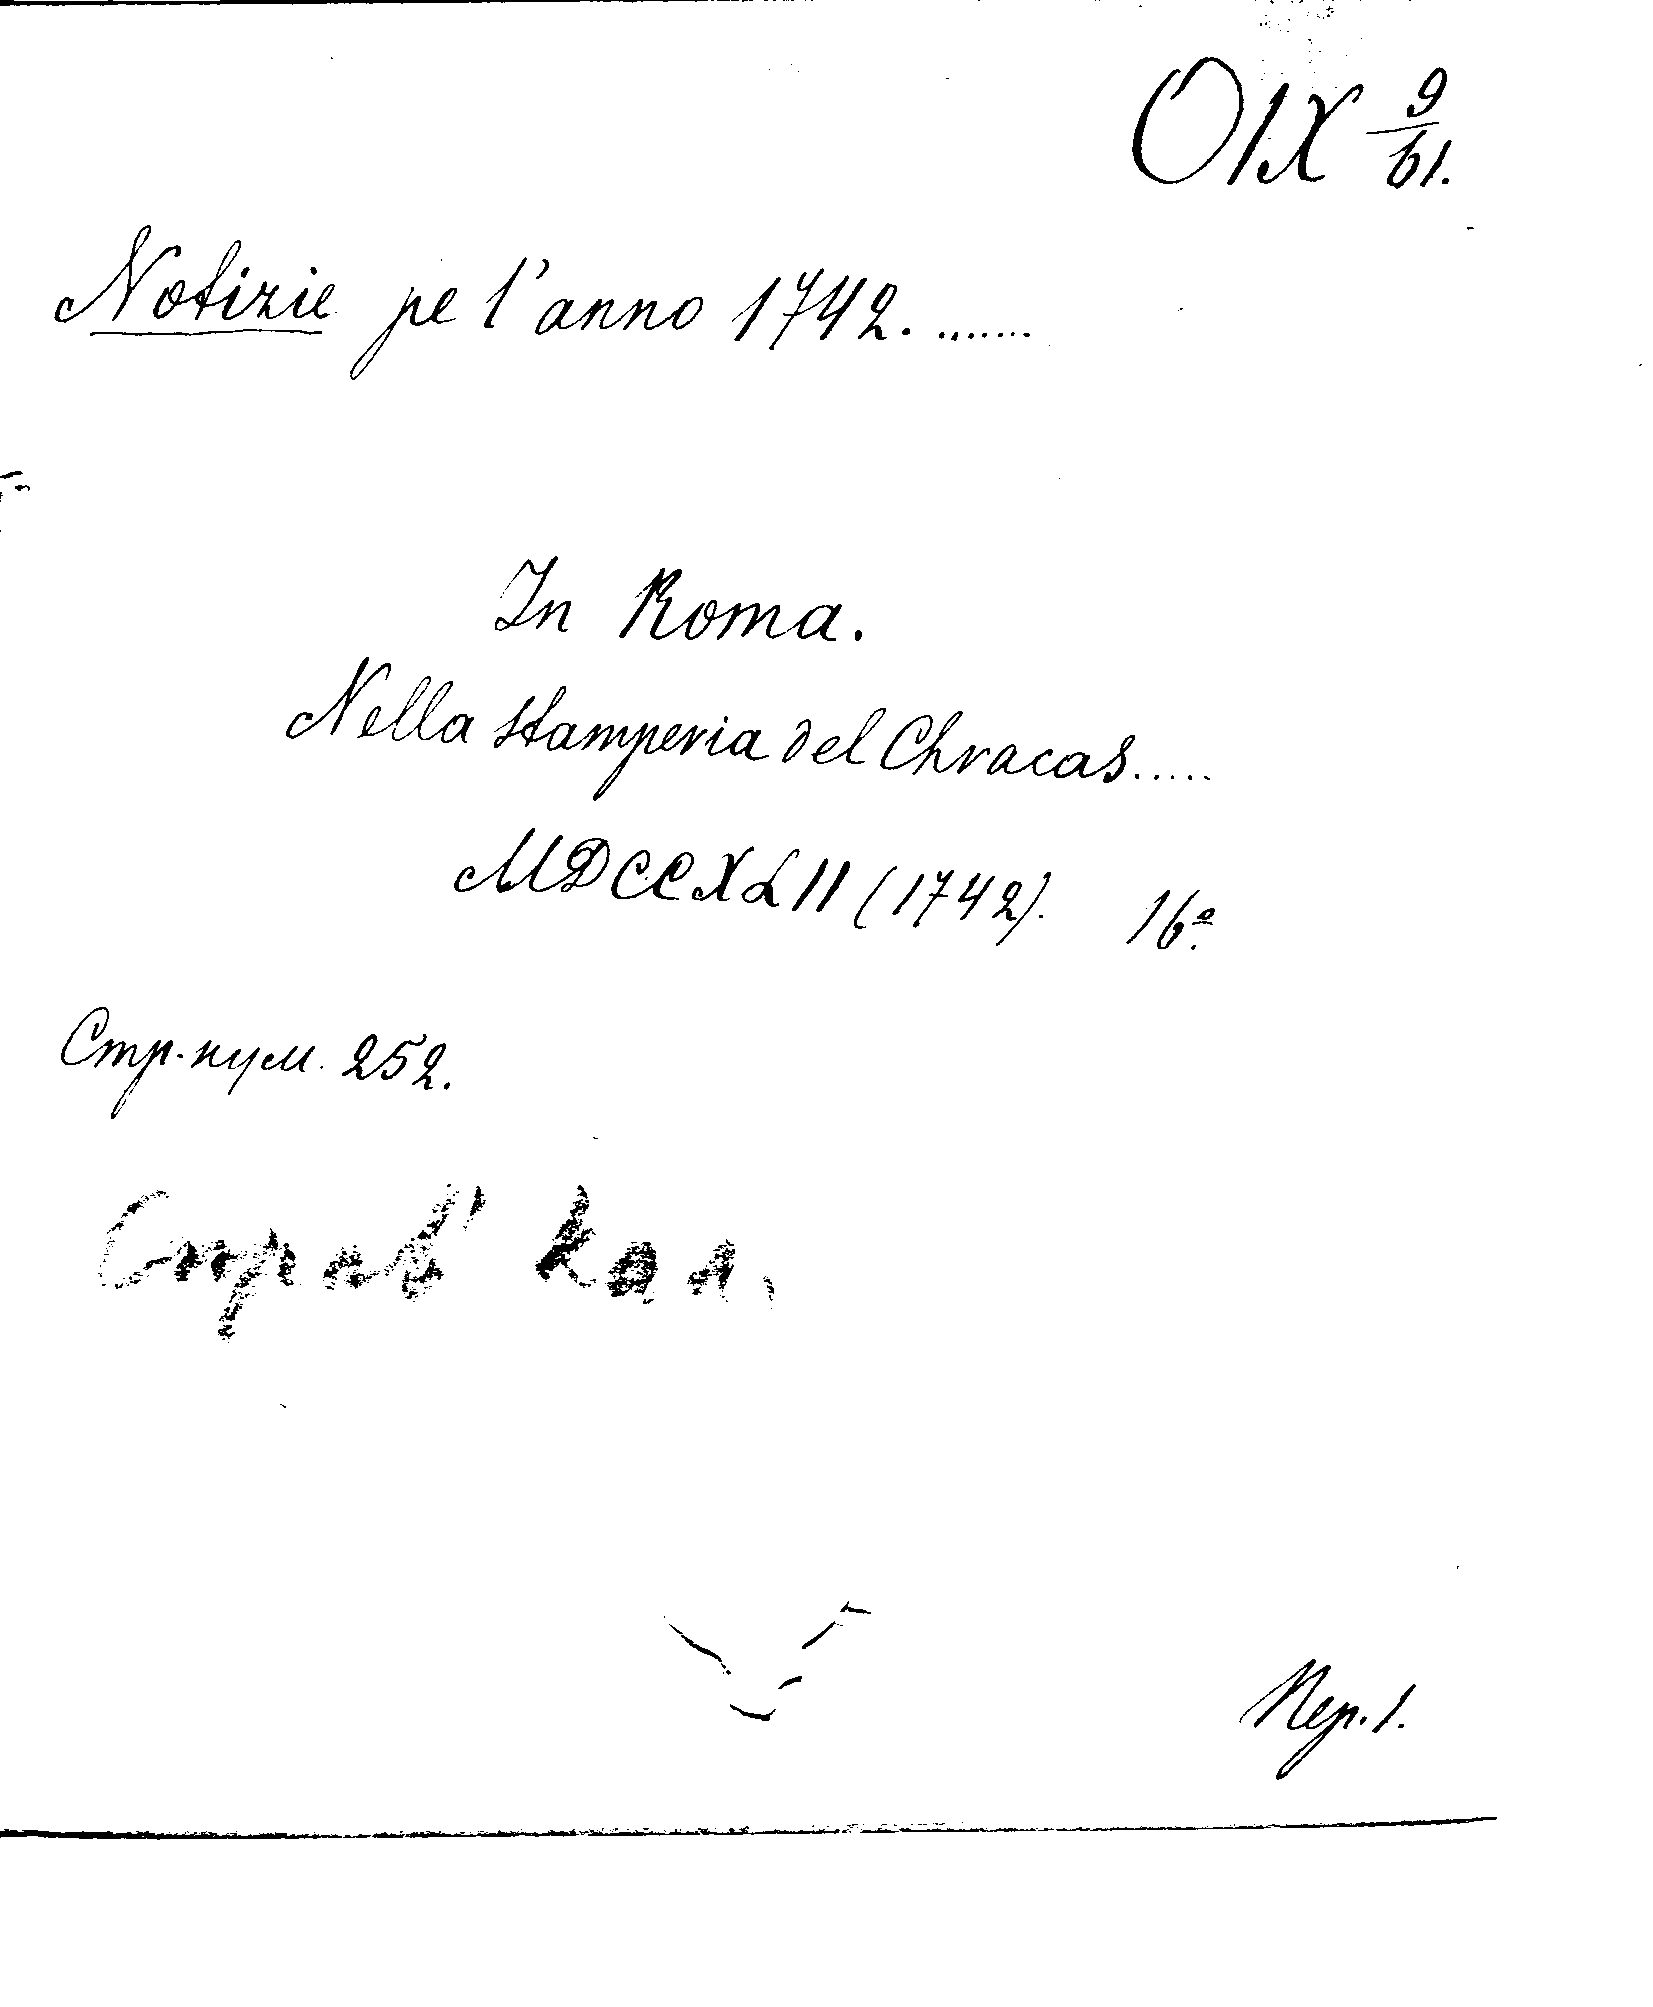 OIX 9/61.
Notizie pe l'anno 1742. .......
In Roma.
Nella stamperia del Chracas.....
MDCCXLII (1742). 16º.
Стр. нум. 252.
Справ' кал.
Пер. 1.